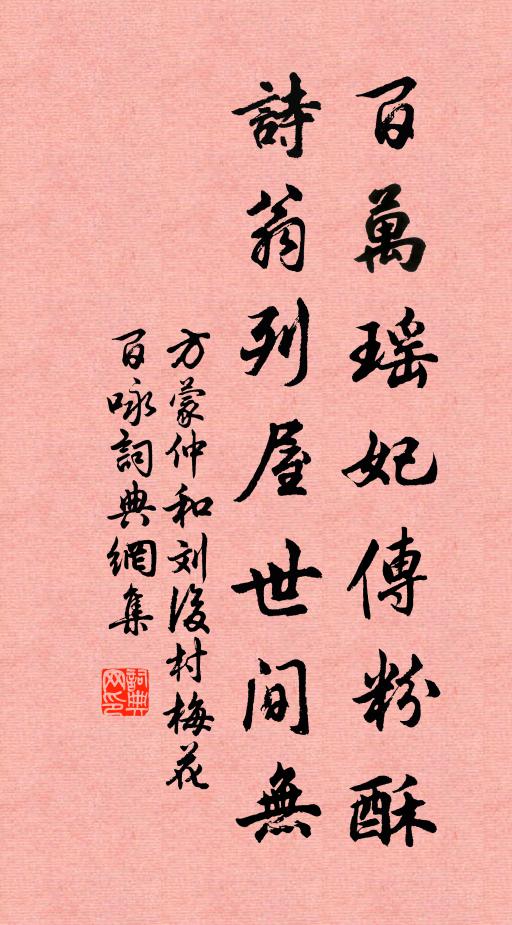 百萬瑶妃傳粉酥
詩翁列屋世间無
方蒙仲和刘後村梅花
百咏詞典網集
詞典网印